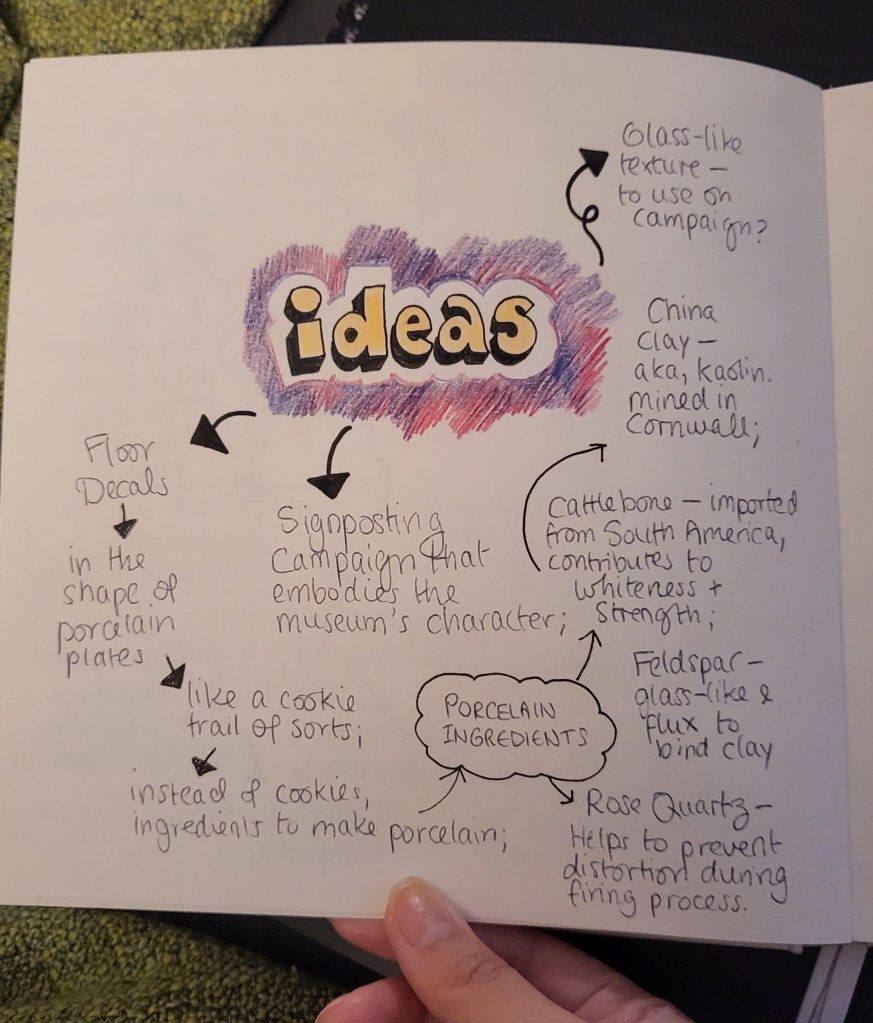 ideas
Glass-like
texture –
to use on
campaign?
Floor
Decals
in the
shape of
porcelain
plates
like a cookie
trail of sorts;
instead of cookies,
ingredients to make porcelain;
Signposting
Campaign that
embodies the
museum's character;
PORCELAIN
INGREDIENTS
China
Clay –
aka, kaolin.
mined in
Cornwall;
Cattlebone – imported
from South America,
contributes to
whiteness +
Strength;
Feldspar –
glass-like &
flux to
bind clay
Rose Quartz –
Helps to prevent
distortion during
firing process.